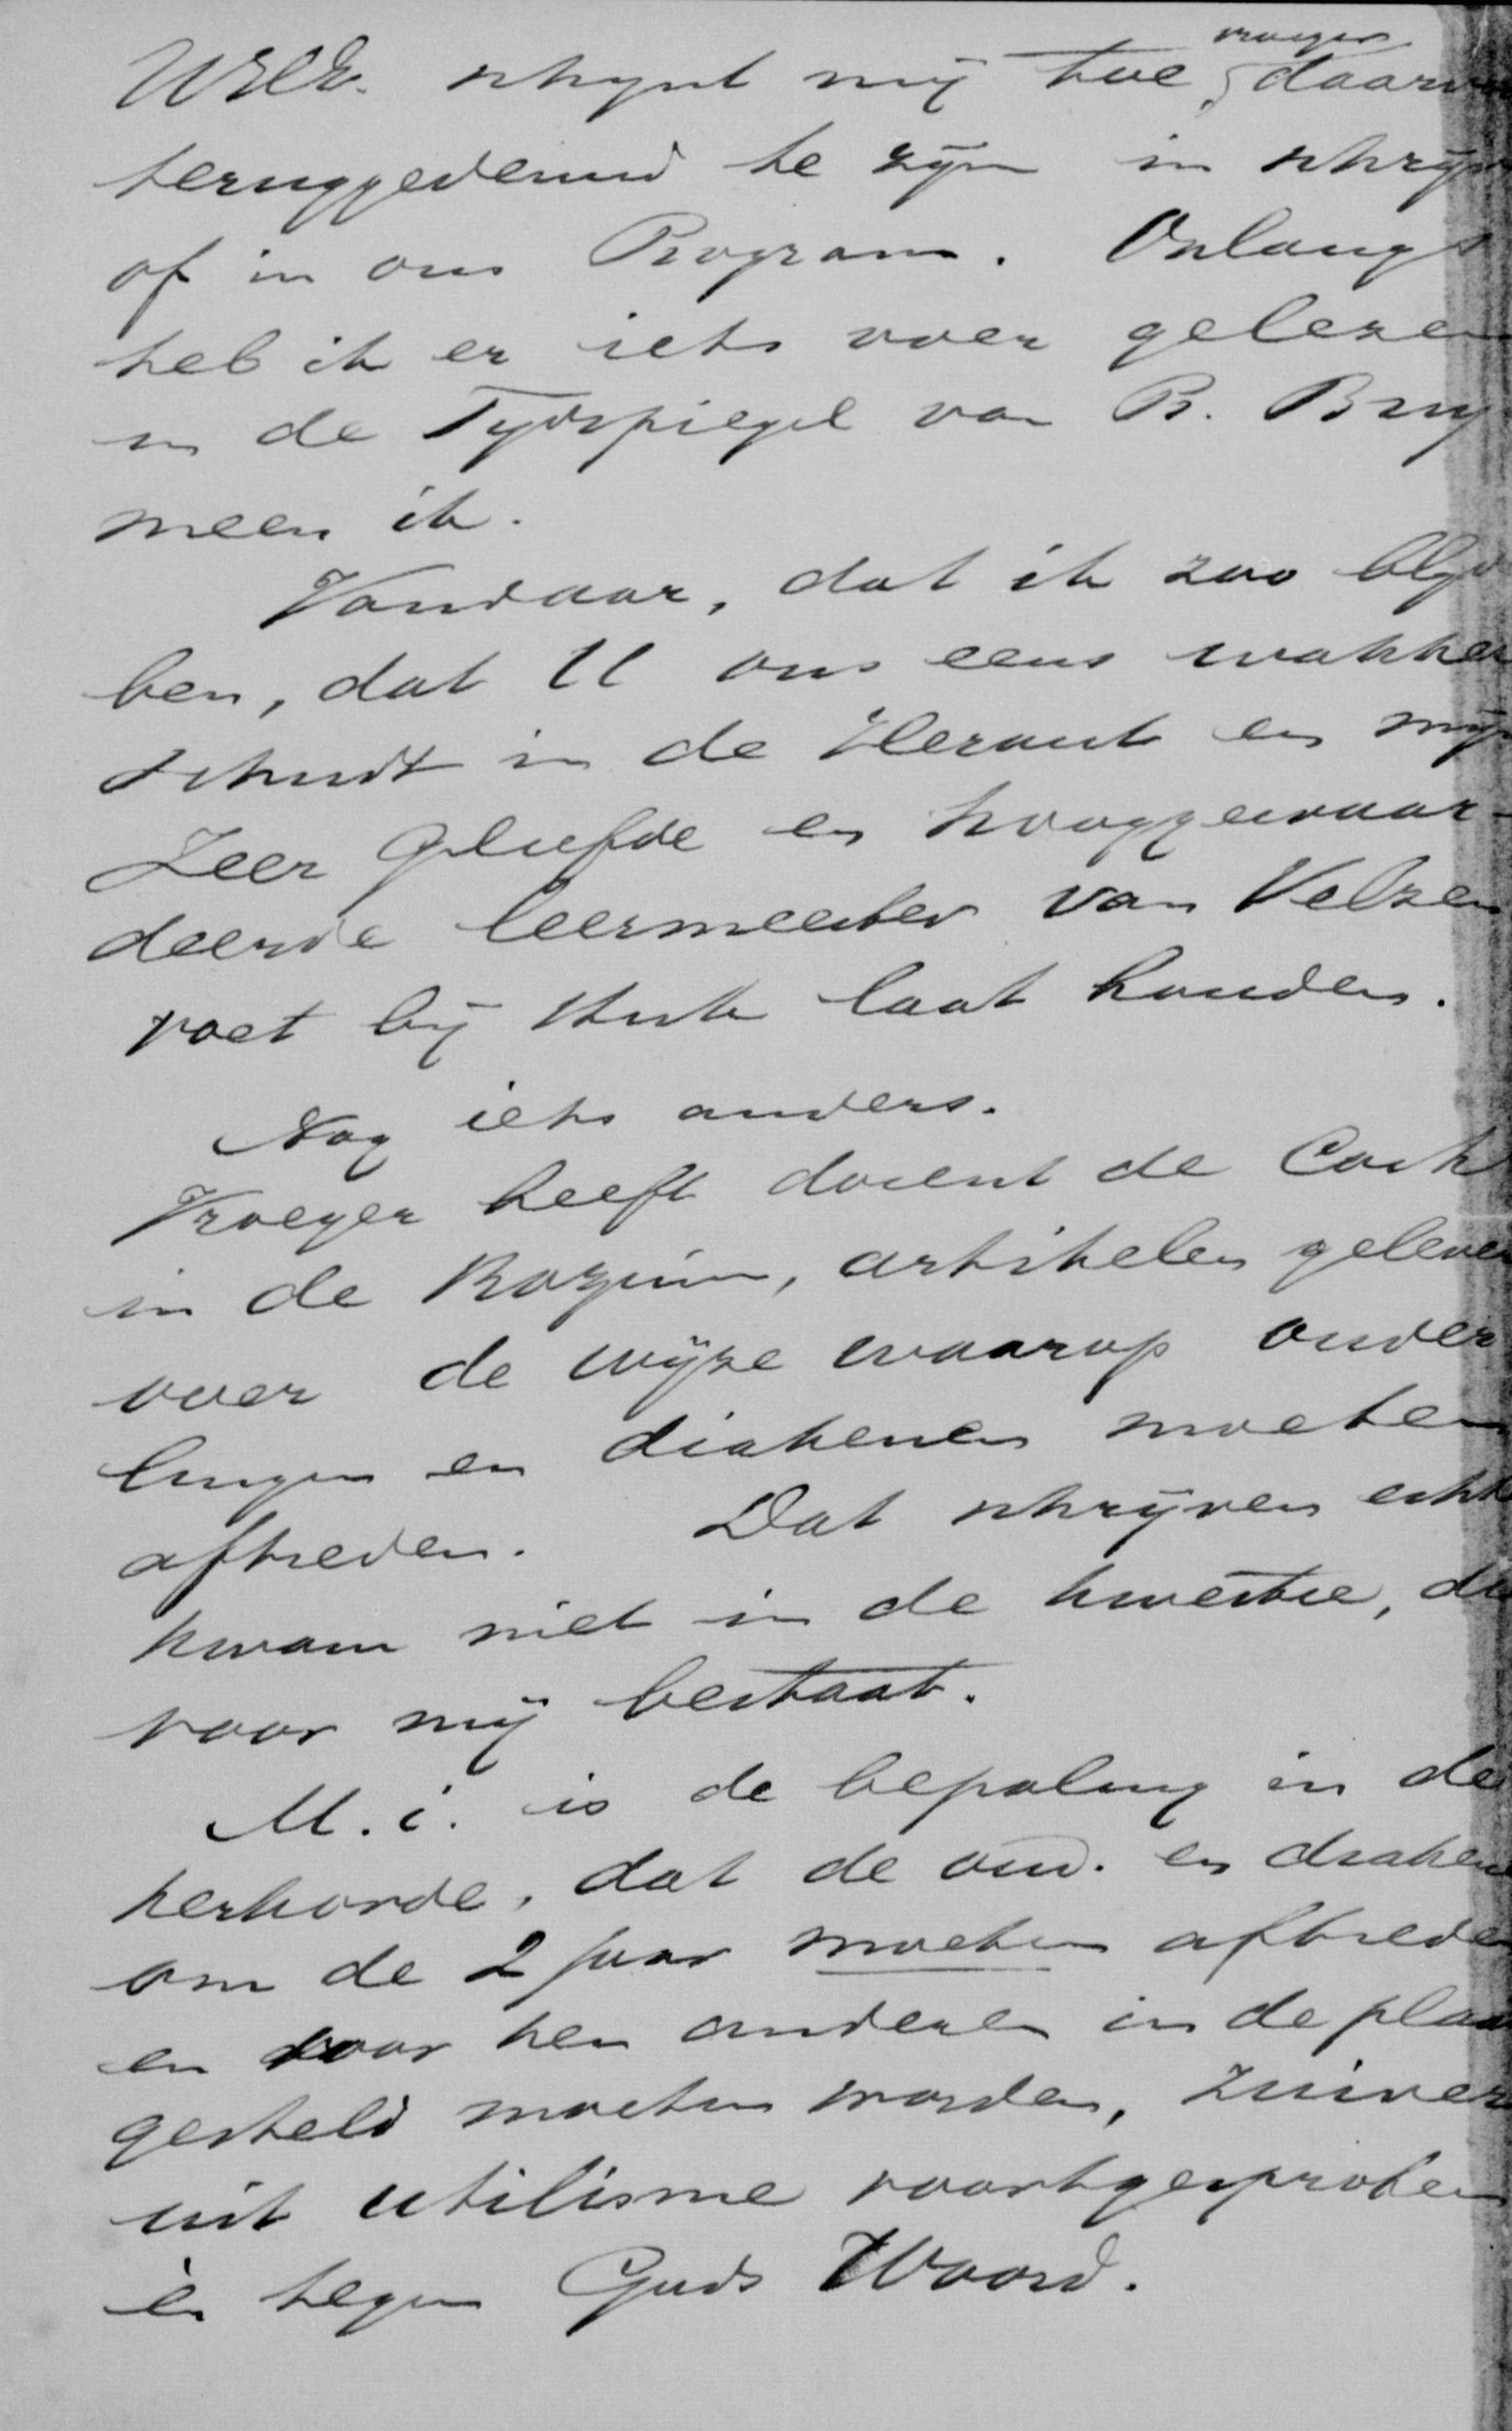 vroeger
UEEW. schynt mij toe, daarvan
teruggedeind te zijn in schrijven
of in ons Program. Onlangs
heb ik er iets over gelezen
in de Tijdspiegel van B. Bruy
meen ik.
Vandaar, dat ik zoo blyd
ben, dat U ons eens wakker
schudt in de Heraut en mijn
Zeer Geliefde en hooggewaar-
deerde leermeester van Velzen
voet bij stuk laat houden.
Nog iets anders.
Vroeger heeft docent de Cock
in de Bazuin, artikelen geleverd
over de wijze waarop ouder
lingen en diakenen moeten
aftreden. Dat schrijven echter
kwam niet in de kwestie, die
voor mij bestaat.
M. i. is de bepaling in de
kerkorde, dat de oud. en diakenen
om de 2 jaar moeten aftreden
en voor hen anderen in de plaats
gesteld moeten worden, zuiver
uit utilisme voortgesproten
én tegen Gods Woord.